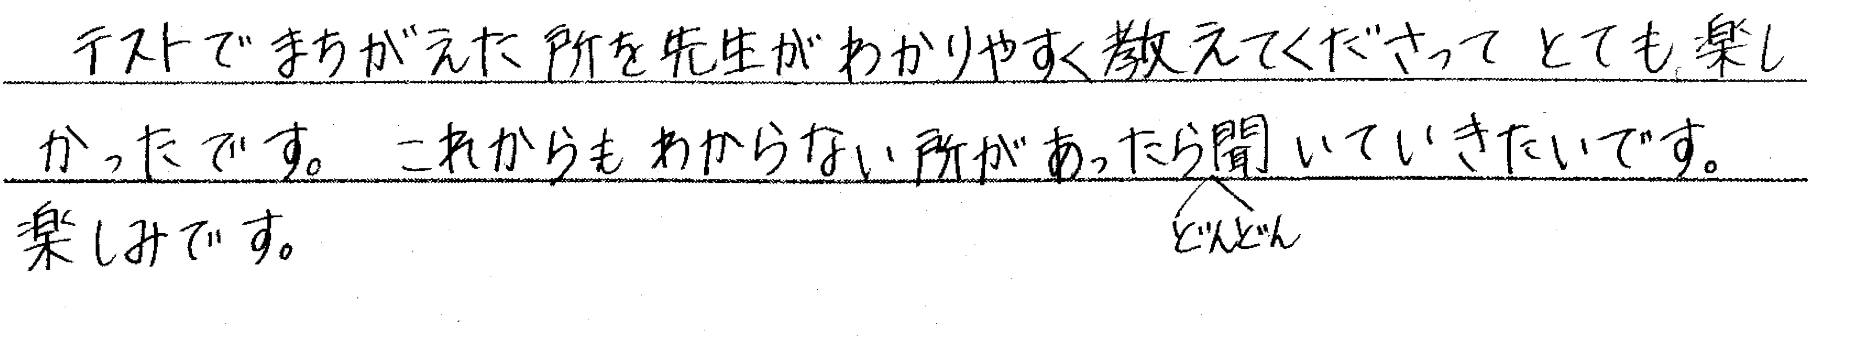 テストでまちがえた所を先生がわかりやすく教えてくださってとても楽し
かったです。これからもわからない所があったら聞いていきたいです。
どんどん
楽しみです。